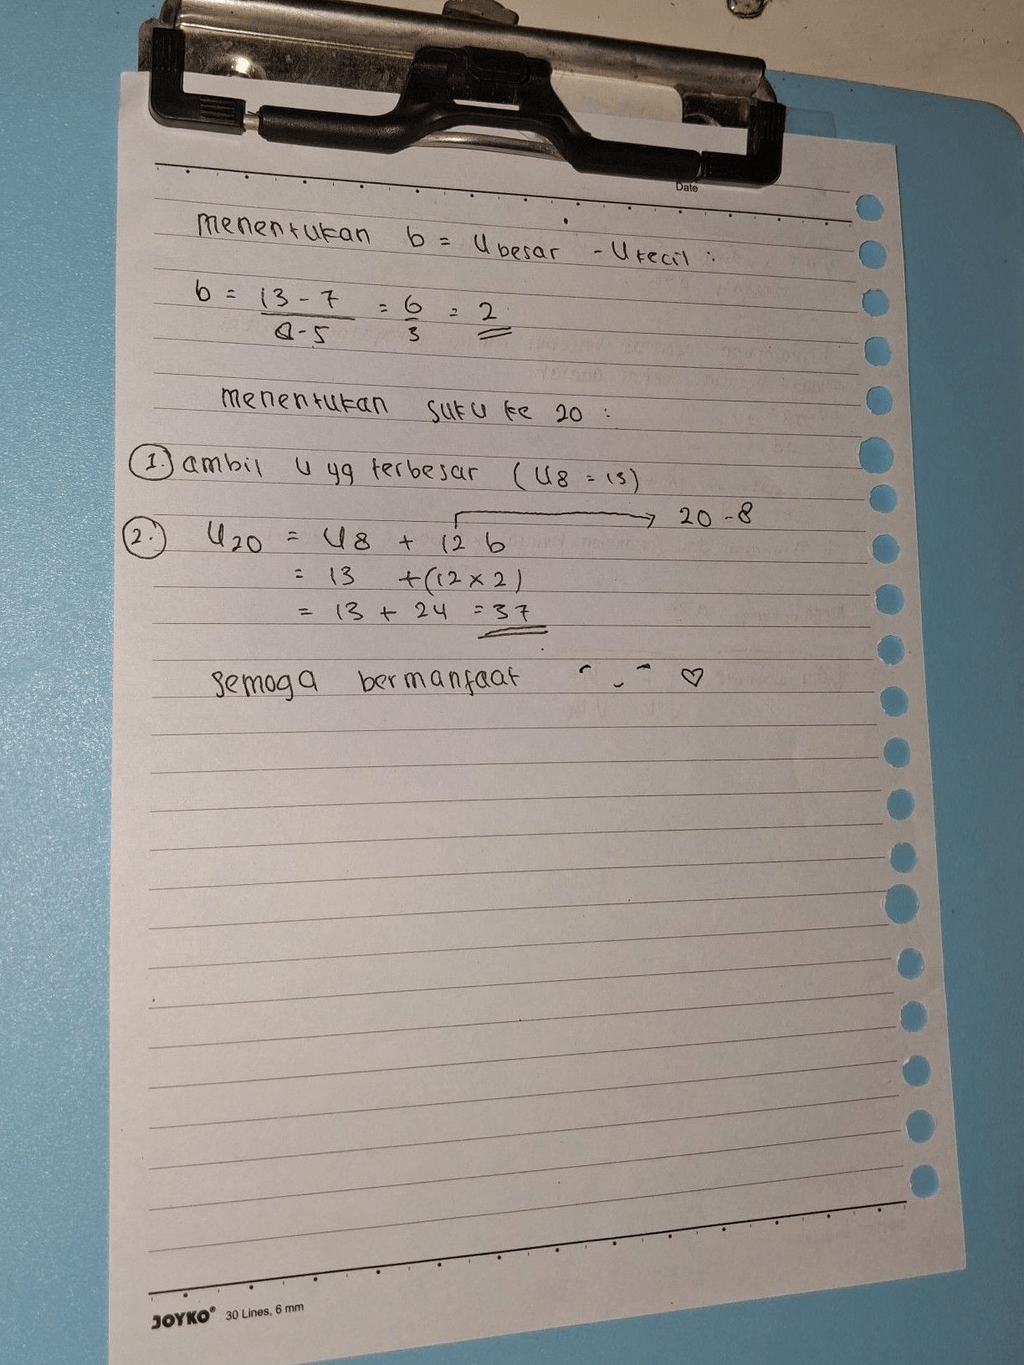 Date
menentukan b = U besar - U kecil :
b = 13 - 7 = 6 = 2
8 - 5 3
menentukan suku ke 20 :
1. ambil U yg terbesar (U8 = 13)
20 - 8
2. U20 = U8 + 12 b
= 13 + (12 x 2)
= 13 + 24 = 37
semoga bermanfaat ♡
JOYKO® 30 Lines, 6 mm